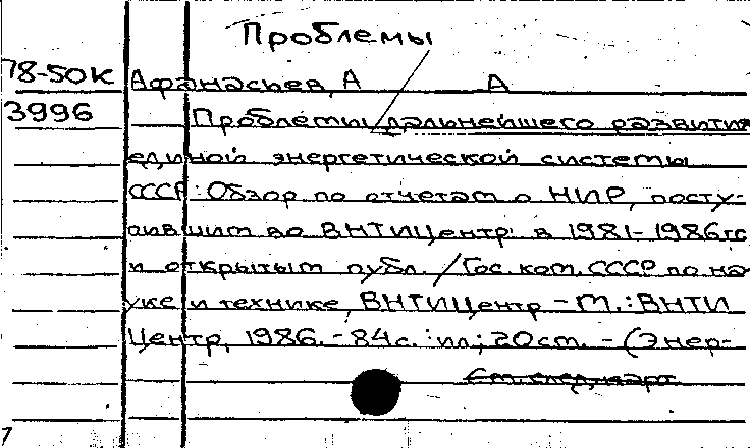 Проблемы
78-50К Афанасьев, А А
3996 Проблемы дальнейшего развития
единой энергетической системы
СССР: Обзор по отчетам о НИР, посту-
пившим во ВНТИЦентр в 1981-1986гг
и открытым публ. / Гос. ком. СССР по на
уке и технике, ВНТИЦентр - М.: ВНТИ
Центр, 1986. - 84с. : ил; 20см. - (Энер-
См. след. карт.
7